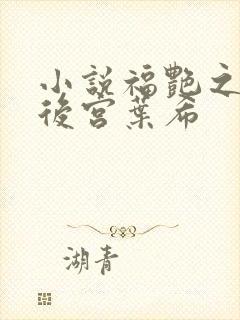 小説福艷之
後宮葉希
湖青